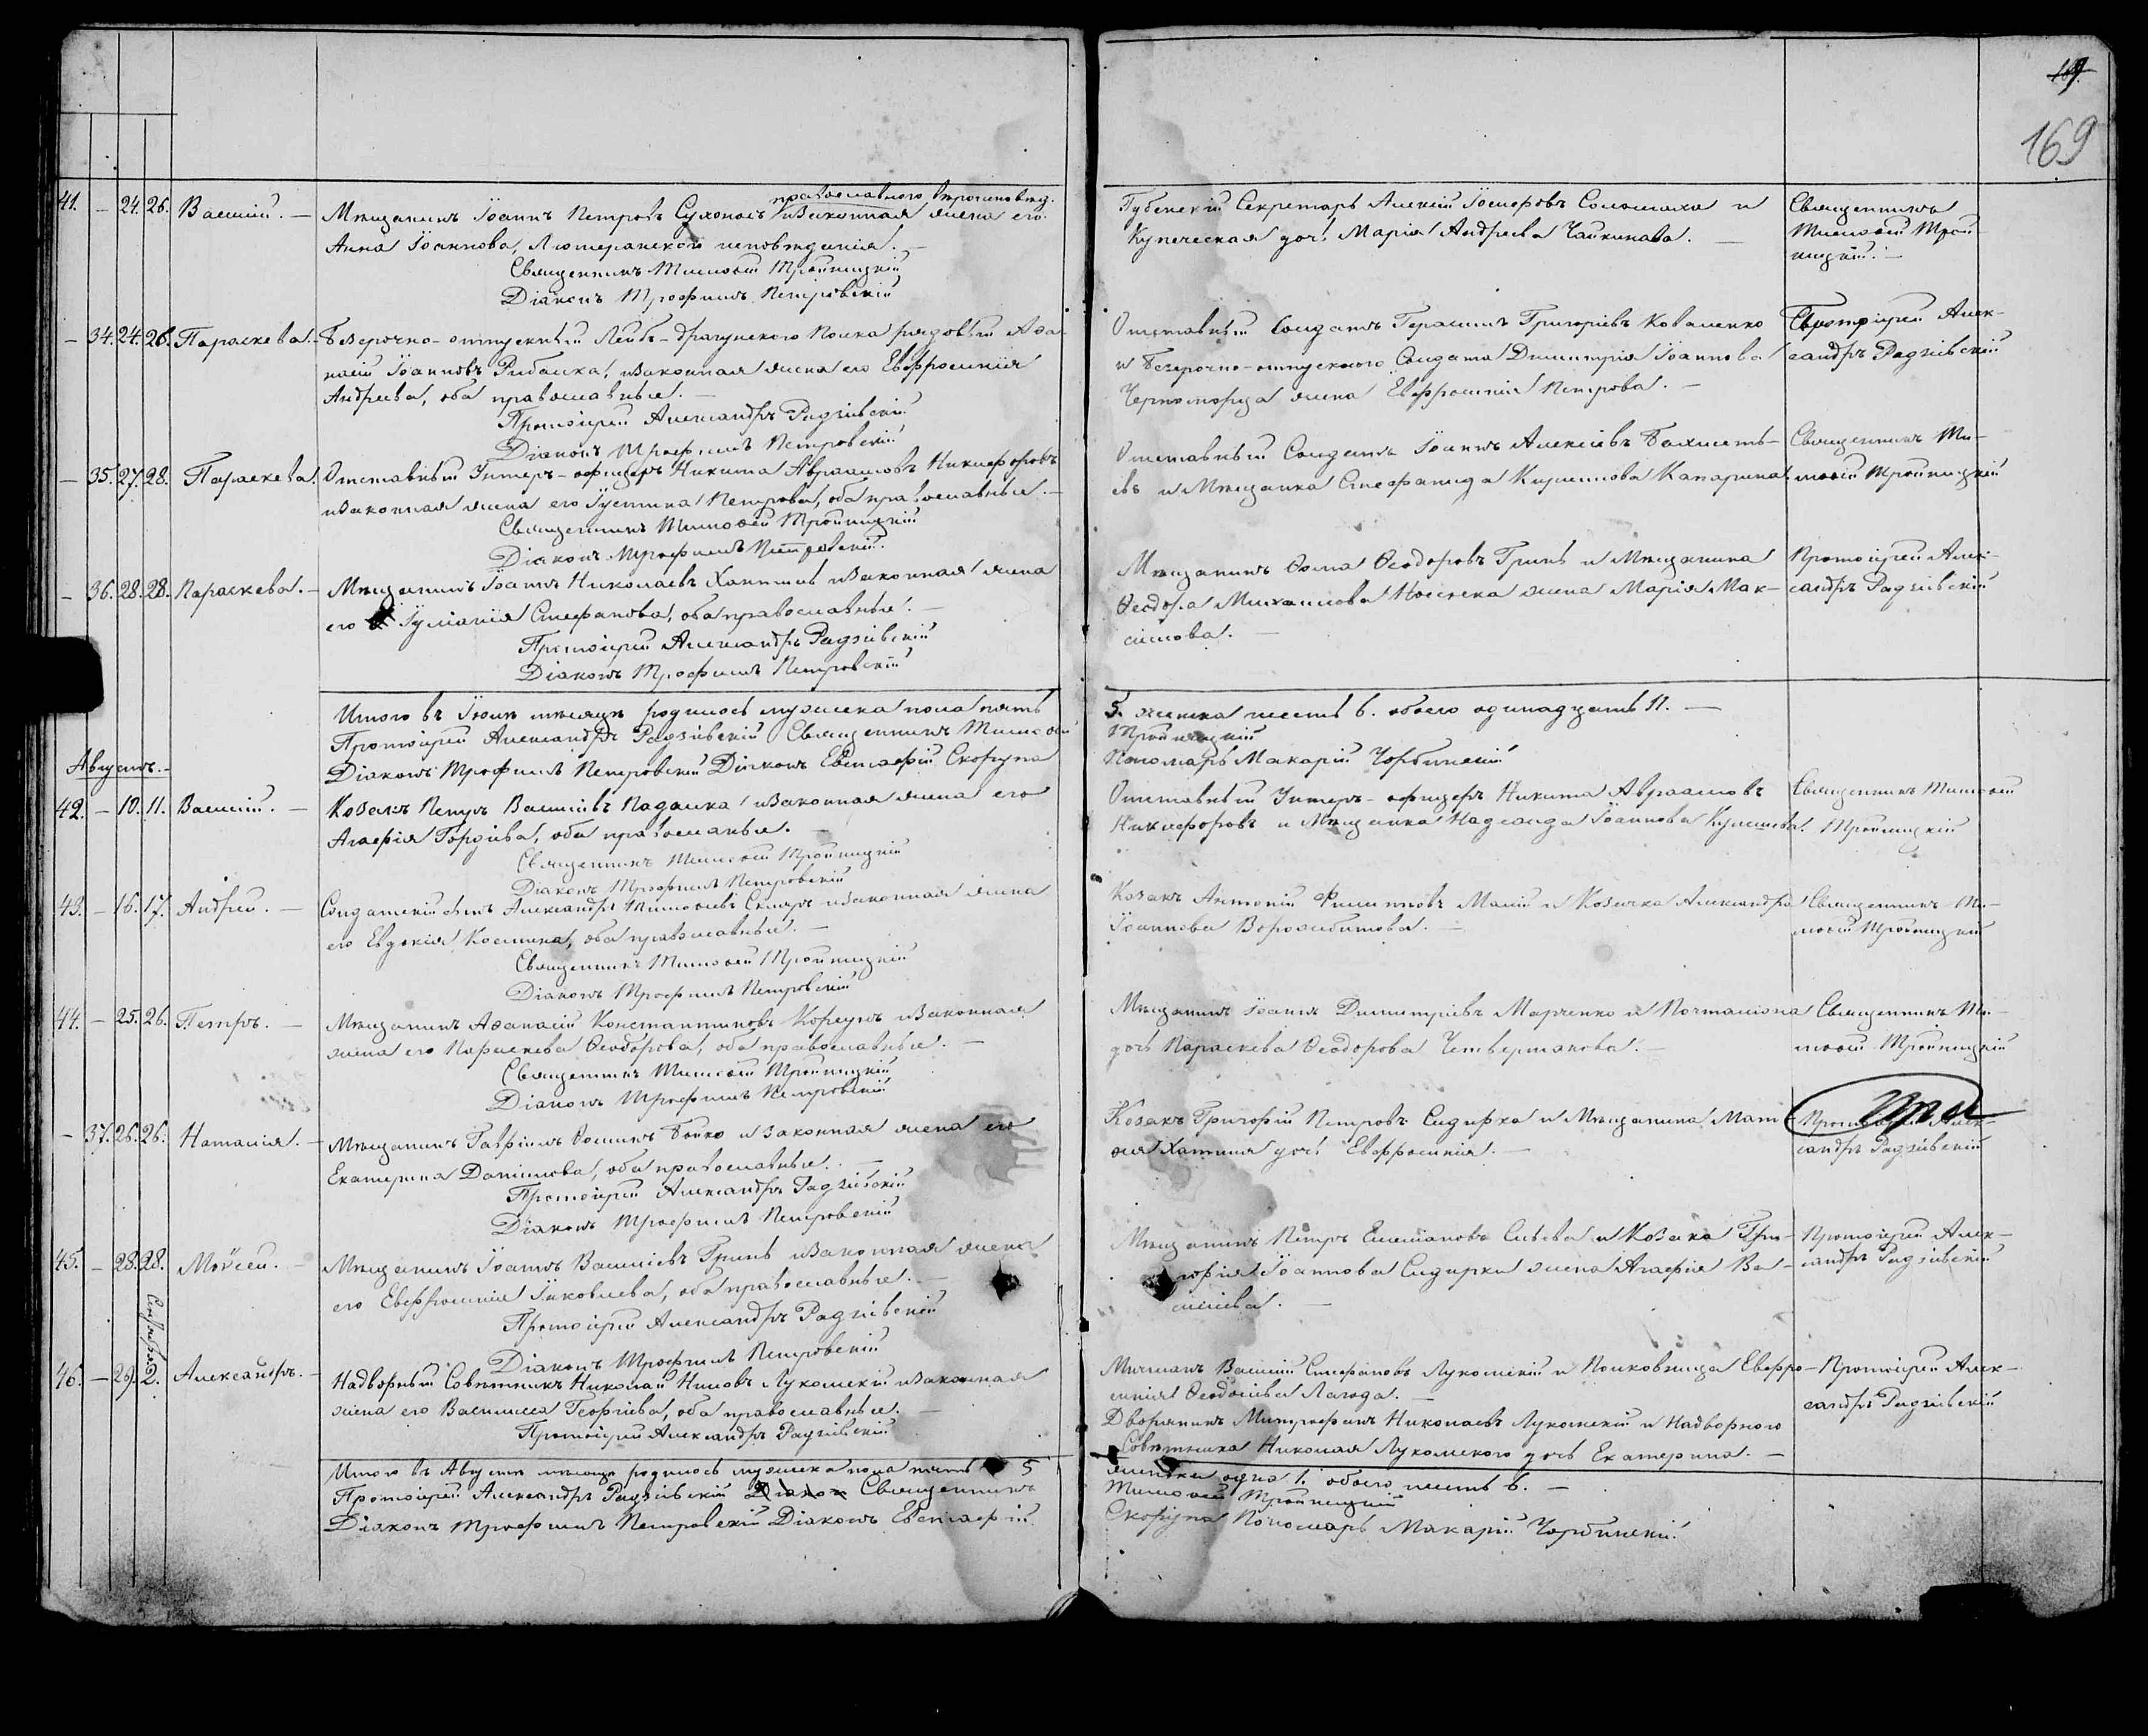 169
41. — 24. 26. Василій. — Мѣщанинъ Іоаннъ Петровъ Сухоносъ православнаго вѣроисповѣд. и законная жена его
Анна Іоаннова, Лютеранского исповѣданія. —
Священникъ Тимоѳей Тройницкій
Діаконъ Трофимъ Петровскій
Губенскій Секретарь Алексій Іосифовъ Соломаха и
Купеческая дочь Марія Андреева Чайкинова. —
Священникъ
Тимоѳей Трой-
ницкій. —
— 34. 24. 26. Параскева. — Безсрочно-отпускный Лейбъ-драгунского Полка рядовый Аѳа-
насій Іоанновъ Рибалка, и законная жена его Евфросинія
Андреева, оба православные. —
Протоіерей Александръ Радзіевскій
Діаконъ Трофимъ Петровскій
Отставный Солдатъ Герасимъ Григоріевъ Коваленко
и Безсрочно-отпускного Солдата Димитрія Іоаннова
Черноморца жена Евфросинія Петрова. —
Протоіерей Алек-
сандръ Радзіевскій
— 35. 27. 28. Параскева. Отставный Унтеръ-офицеръ Никита Авраамовъ Никифоровъ
и законная жена его Іустина Петрова, оба православные. —
Священникъ Тимоѳей Тройницкій
Діаконъ Трофимъ Петровскій.
Отставный Солдатъ Іоаннъ Алексіевъ
и Мѣщанка Стефанида Кириллова
Священникъ Ти-
моѳей Тройницкій
— 36. 28. 28. Параскева. — Мѣщанинъ Іоаннъ Николаевъ и законная жена
его Іуліанія Стефанова, оба православные. —
Протоіерей Александръ Радзіевскій
Діаконъ Трофимъ Петровскій
Мѣщанинъ Ѳома Ѳеодоровъ Гринь и Мѣщанина
Ѳеодора Михаилова Носенка жена Марія Мак-
симова. —
Протоіерей Алек-
сандръ Радзіевскій
Итого въ Іюлѣ мѣсяцѣ родилось мужеска пола пять
5. женска шесть 6. обоего одинадцать 11. —
Протоіерей Александръ Радзіевскій Священникъ Тимоѳей
Тройницкій
Діаконъ Трофимъ Петровскій Діаконъ Евстафій Скорупа
Пономарь Макарій Чорбинскій
Августъ. —
42. — 10. 11. Василій. — Козакъ Петръ Василіевъ Падалка и законная жена его
Агафія Гордіева, оба православные. —
Священникъ Тимоѳей Тройницкій
Діаконъ Трофимъ Петровскій
Отставный Унтеръ-офицеръ Никита Авраамовъ
Никифоровъ и Мѣщанка Надежда Іоаннова
Священникъ Тимоѳей
Тройницкій
43. — 16. 17. Андрей. — Солдатскій сынъ Александръ Тимоѳеевъ Скляръ и законная жена
его Евдокія Космина, оба православные. —
Священникъ Тимоѳей Тройницкій
Діаконъ Трофимъ Петровскій
Козакъ Антоній Филипповъ Малій и Козачка Александра
Іоаннова Ворожбитова. —
Священникъ Ти-
моѳей Тройницкій
44. — 25. 26. Петръ. — Мѣщанинъ Аѳанасій Константиновъ Коржунъ и законная
жена его Параскева Ѳеодорова, оба православные. —
Священникъ Тимоѳей Тройницкій
Діаконъ Трофимъ Петровскій
Мѣщанинъ Іоаннъ Димитріевъ Марченко и Почталіона
дочь Параскева Ѳеодорова Четвертакова. —
Священникъ Ти-
моѳей Тройницкій
— 37. 26. 26. Наталія. — Мѣщанинъ Гавріилъ Ѳоминъ Бойко и законная жена его
Екатерина Даніилова, оба православные. —
Протоіерей Александръ Радзіевскій
Діаконъ Трофимъ Петровскій
Козакъ Григорій Петровъ Сидирка и Мѣщанина Мат-
ѳея дочь Евфросинія. —
Протоіерей Алек-
сандръ Радзіевскій
45. — 28. 28. Моѵсей. — Мѣщанинъ Іоаннъ Василіевъ Гринь и законная жена
его Евфросинія Іяковлева, оба православные. —
Протоіерей Александръ Радзіевскій
Діаконъ Трофимъ Петровскій
Мѣщанинъ Петръ и Козака Гри-
горія Іоаннова Сидирки жена Агафія Ва-
силіева. —
Протоіерей Алек-
сандръ Радзіевскій
Сентября
46. — 29. 2. Александръ. — Надворный Совѣтникъ Николай Ниловъ Лукомскій и законная
жена его Василисса Георгіева, оба православные. —
Протоіерей Александръ Радзіевскій
Мичманъ Василій Стефановъ Лукомскій и Полковница Евфро-
синія Ѳеодосіева Лагода. —
Дворянинъ Митрофанъ Николаевъ Лукомскій и Надворного
Совѣтника Николая Лукомского дочь Екатерина. —
Протоіерей Алек-
сандръ Радзіевскій
Итого въ Августѣ мѣсяцѣ родилось мужеска пола пять 5
женска одна 1. обоего шесть 6. —
Протоіерей Александръ Радзіевскій Діакон Священникъ
Тимоѳей Тройницкій
Діаконъ Трофимъ Петровскій Діаконъ Евстафій
Скорупа Пономарь Макарій Чорбинскій